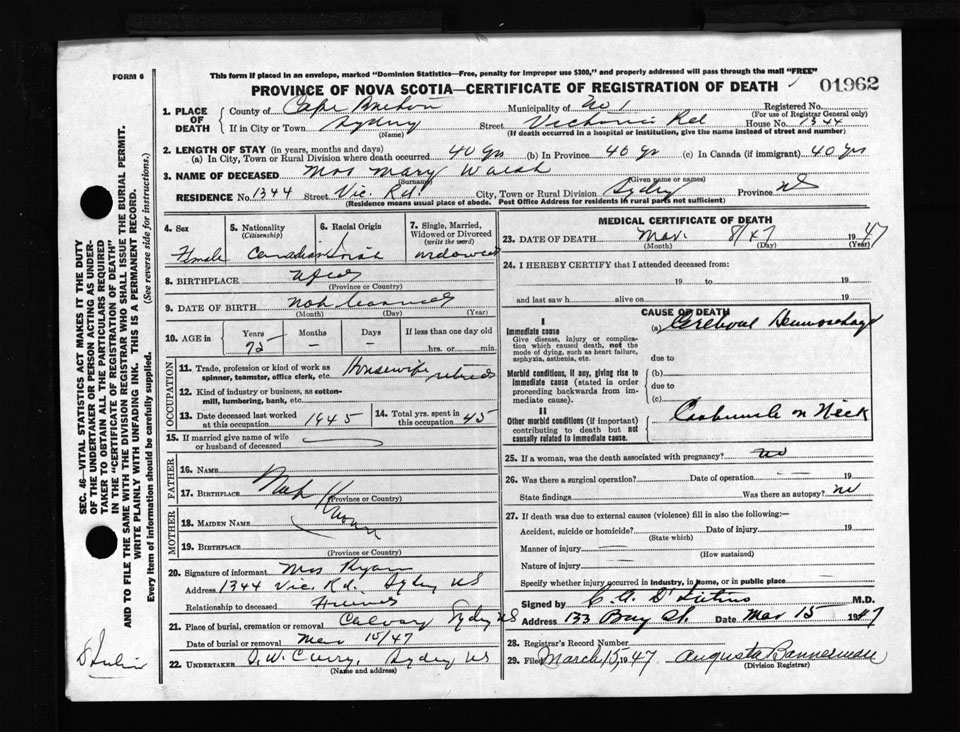 FORM 6
This form if placed in an envelope, marked "Dominion Statistics—Free, penalty for improper use $300," and properly addressed will pass through the mail "FREE"
PROVINCE OF NOVA SCOTIA—CERTIFICATE OF REGISTRATION OF DEATH
01962
1. PLACE OF DEATH
County of Cape Breton Municipality of No 1 Registered No.
(For use of Registrar General only)
If in City or Town Sydney Street Victoria Rd House No. 1344
(Name) (If death occurred in a hospital or institution, give the name instead of street and number)
2. LENGTH OF STAY (in years, months and days)
(a) In City, Town or Rural Division where death occurred 40 yrs (b) In Province 40 yr (c) In Canada (if immigrant) 40 yrs
3. NAME OF DECEASED Mrs Mary Walsh
(Surname) (Given name or names)
RESIDENCE No. 1344 Street Vic. Rd City, Town or Rural Division Sydney Province NS
(Residence means usual place of abode. Post Office Address for residents in rural parts not sufficient)
4. Sex
5. Nationality
(Citizenship)
6. Racial Origin
7. Single, Married, Widowed or Divorced
(write the word)
Female Canadian Irish widowed
8. BIRTHPLACE Nfld
(Province or Country)
9. DATE OF BIRTH Not
(Month) (Day) (Year)
10. AGE in
Years Months Days If less than one day old
72 – – hrs. or min.
OCCUPATION
11. Trade, profession or kind of work as spinner, teamster, office clerk, etc. Housewife retired
12. Kind of industry or business, as cotton-mill, lumbering, bank, etc.
13. Date deceased last worked at this occupation 1945
14. Total yrs. spent in this occupation 45
15. If married give name of wife or husband of deceased
FATHER
16. NAME
17. BIRTHPLACE
(Province or Country)
Not Known
MOTHER
18. MAIDEN NAME
19. BIRTHPLACE
(Province or Country)
20. Signature of informant Mrs Ryan
Address 1344 Vic. Rd. Sydney NS
Relationship to deceased
21. Place of burial, cremation or removal Calvary Sydney NS
Date of burial or removal Mar 15/47
22. UNDERTAKER J. W. Curry, Sydney NS
(Name and address)
MEDICAL CERTIFICATE OF DEATH
23. DATE OF DEATH Mar. 8/47 1947
(Month) (Day) (Year)
24. I HEREBY CERTIFY that I attended deceased from:
19 to 19
and last saw h alive on 19
CAUSE OF DEATH
I
Immediate cause
Give disease, injury or complication which caused death, not the mode of dying, such as heart failure, asphyxia, asthenia, etc.
(a) Cerebral Hemorrhage
due to
Morbid conditions, if any, giving rise to immediate cause (stated in order proceeding backwards from immediate cause).
(b)
due to
(c)
II
Other morbid conditions (if important) contributing to death but not causally related to immediate cause.
Carbuncle on Neck
25. If a woman, was the death associated with pregnancy? no
26. Was there a surgical operation? Date of operation 19
State findings Was there an autopsy? no
27. If death was due to external causes (violence) fill in also the following:—
Accident, suicide or homicide? Date of injury 19
(State which)
Manner of injury
(How sustained)
Nature of injury
Specify whether injury occurred in industry, in home, or in public place
Signed by M.D.
Address 133 Bay St. Date Mar 15 1947
28. Registrar's Record Number
29. Filed March 15, 1947 Augusta Bannerman
(Division Registrar)
SEC. 46—VITAL STATISTICS ACT MAKES IT THE DUTY
OF THE UNDERTAKER OR PERSON ACTING AS UNDER-
TAKER TO OBTAIN ALL THE PARTICULARS REQUIRED
IN THE "CERTIFICATE OF REGISTRATION OF DEATH"
AND TO FILE THE SAME WITH THE DIVISION REGISTRAR WHO SHALL ISSUE THE BURIAL PERMIT.
WRITE PLAINLY WITH UNFADING INK. THIS IS A PERMANENT RECORD.
Every item of information should be carefully supplied. (See reverse side for instructions.)